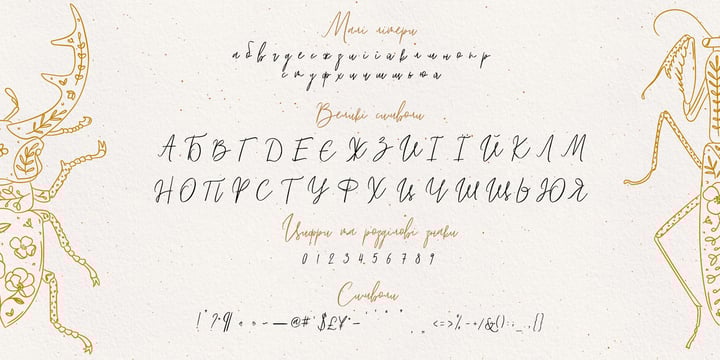 Малі літери
абвгдеєжзиіїйклмнопр
стуфхцчшщьюя
Великі символи
АБВГДЕЄЖЗИІЇЙКЛМ
НОПРСТУФХЦЧШЩЬЮЯ
Цифри та розділові знаки
0123456789
Символи